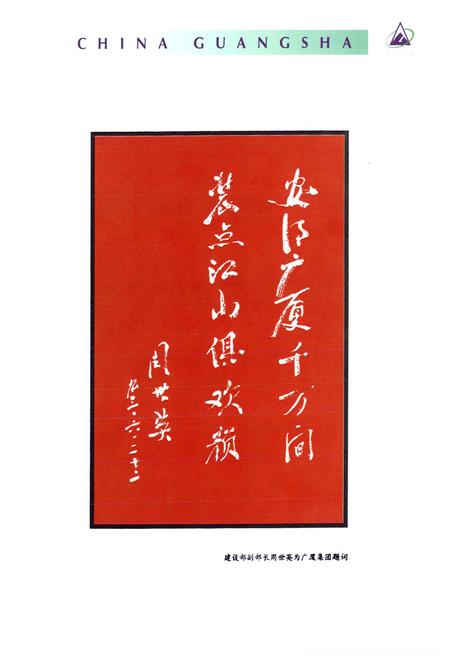 CHINA GUANGSHA
安得广厦千万间
装点江山俱欢颜
周世英
建设部副部长周世英为广厦集团题词